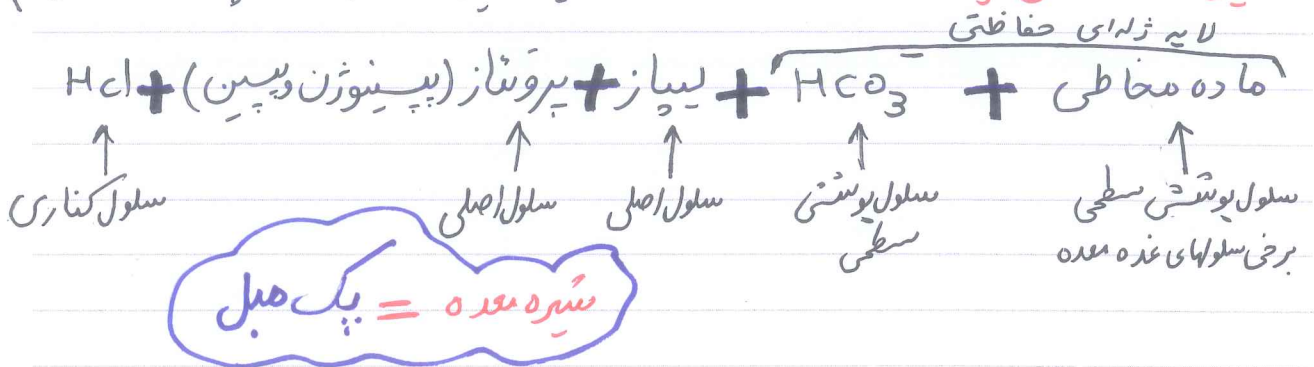 لایه ژله‌ای حفاظتی
ماده مخاطی + HCO3⁻ + لیپاز + پروتئاز (پپسینوژن وپپسین) + HCl
سلول پوششی سطحی
برخی سلولهای غده معده
سلول پوششی
سطحی
سلول اصلی
سلول اصلی
سلول کناری
شیره معده = پک مبل